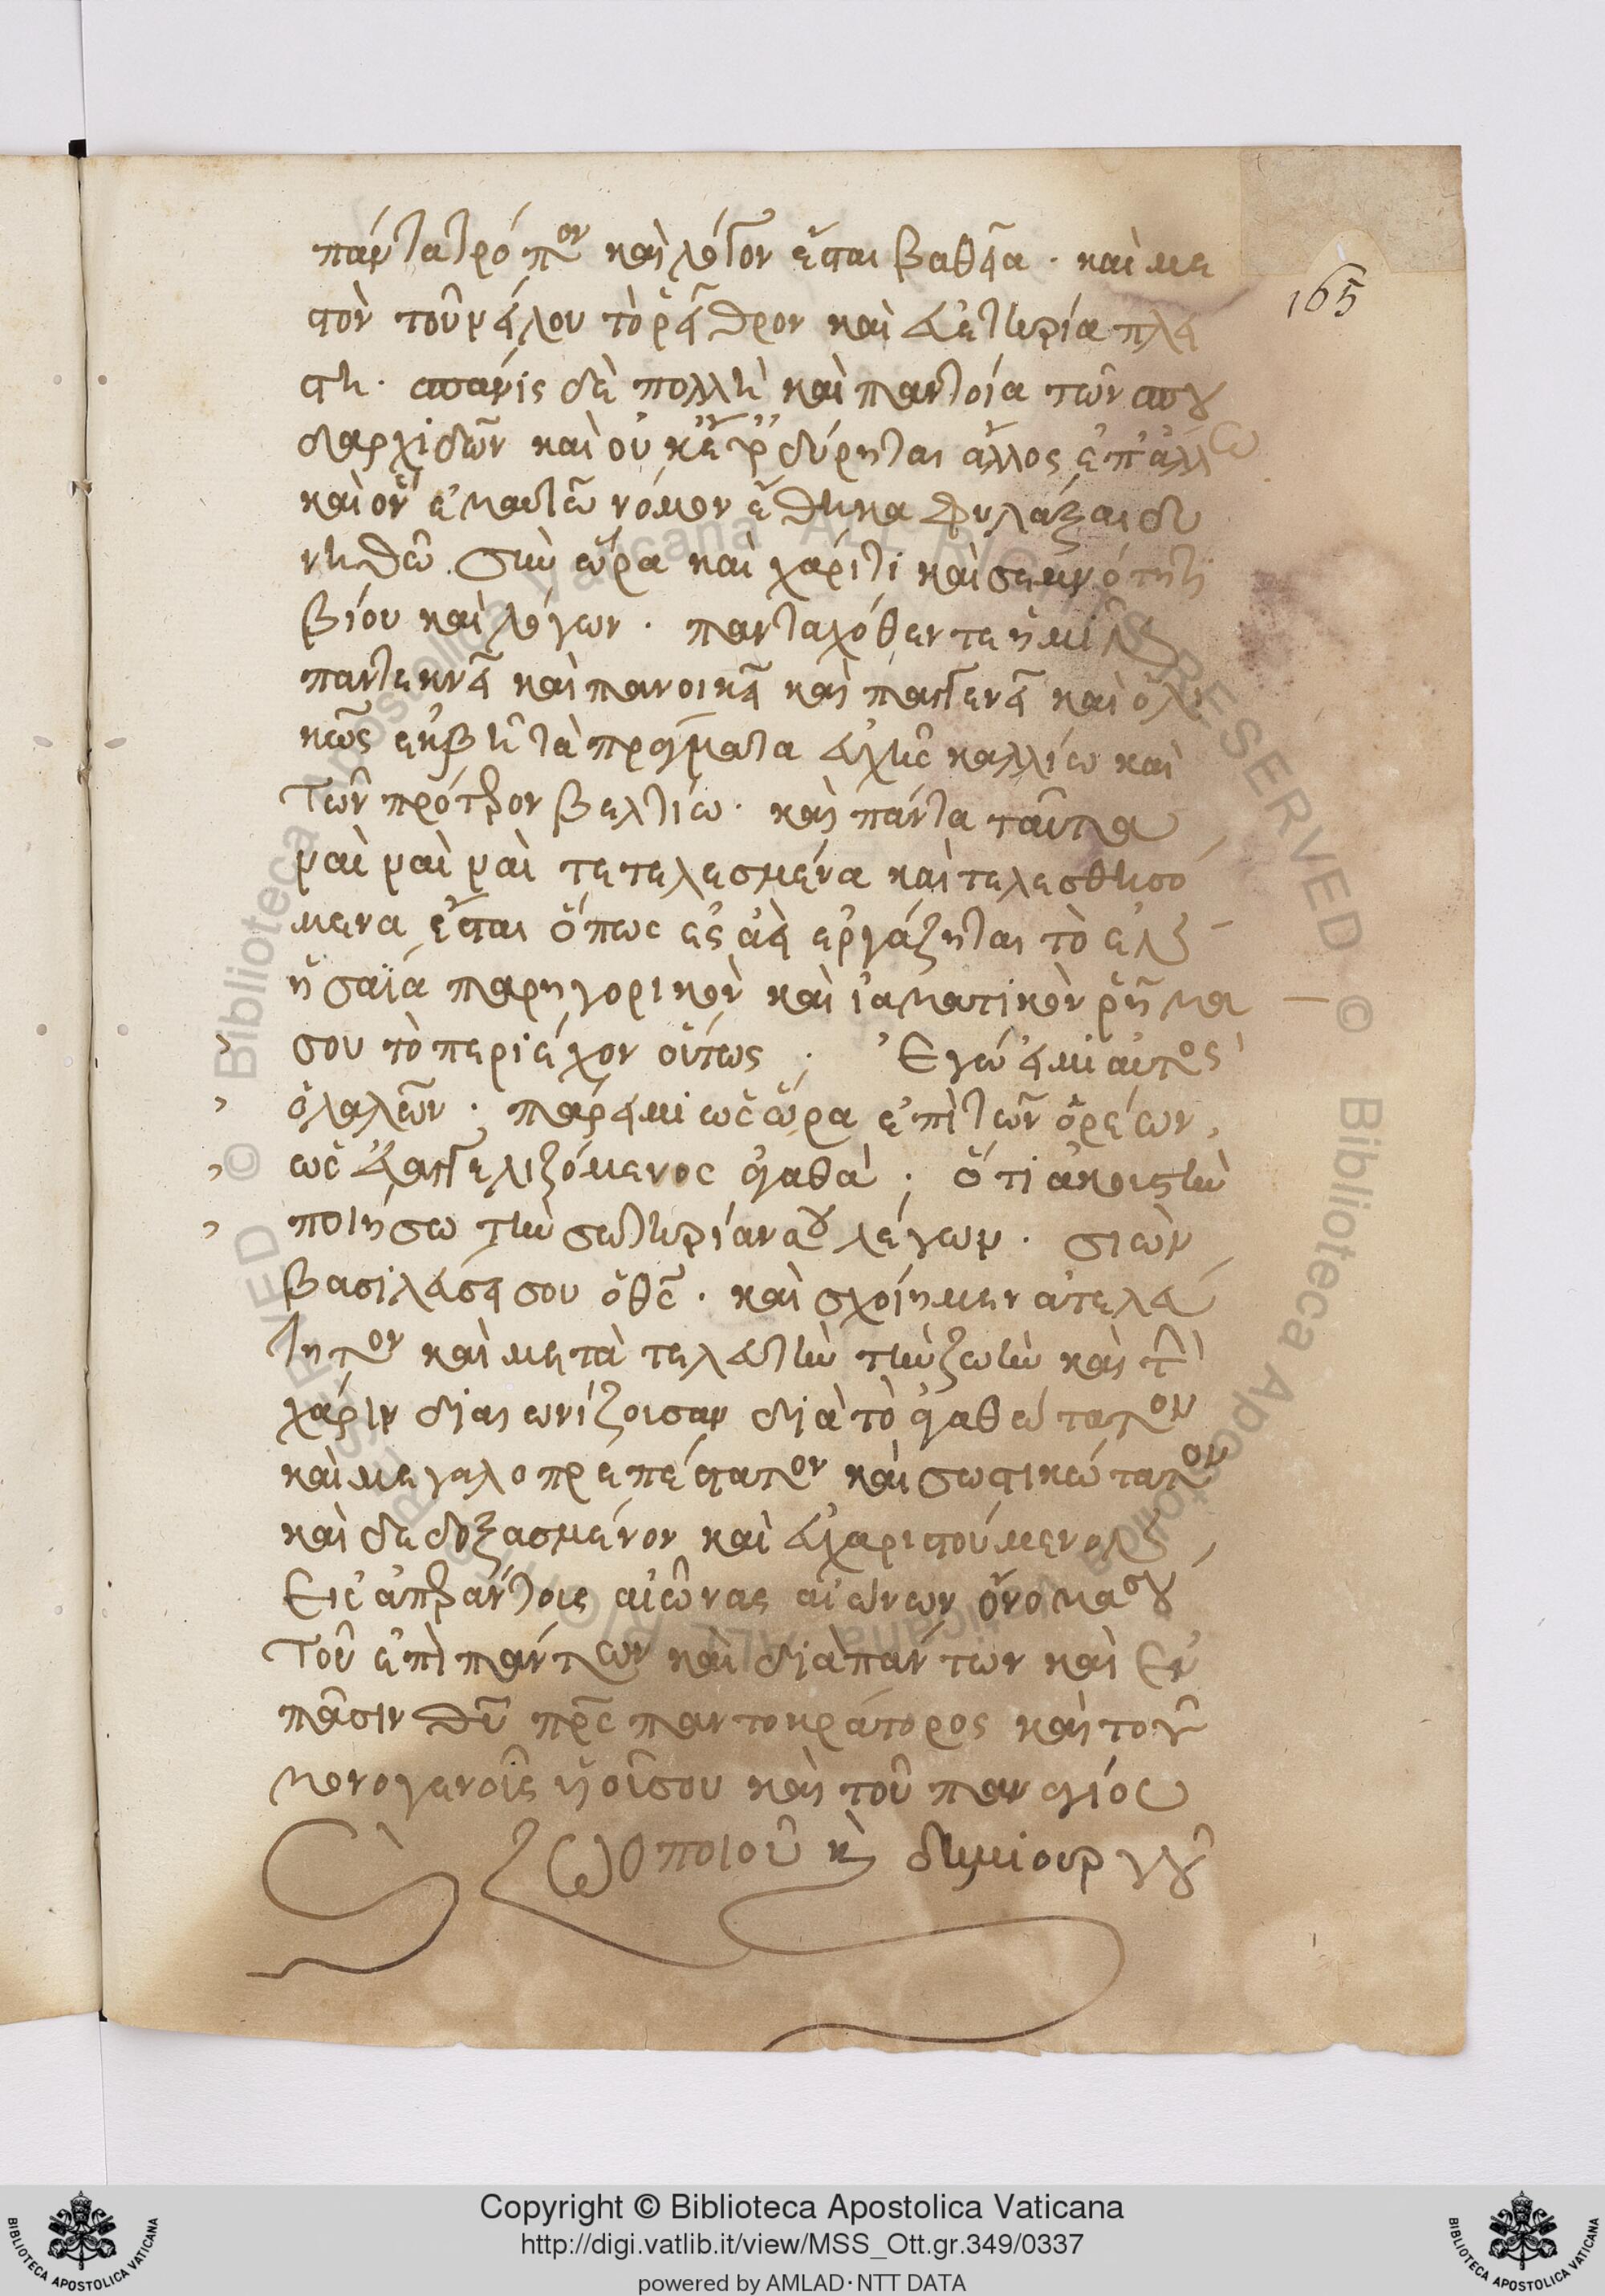 πάντα τρόπον καὶ λόγον ἔσται βαθεῖα · καὶ με
στὸν τοῦ νείλου τὸ ῥεῖθρον καὶ εὐετηρία πλεί
στη · σπάνις δὲ πολλὴ καὶ παντοία τῶν σπου
δαρχιδῶν καὶ οὐκέτι ὀδύρηται ἄλλος ἐπ' ἄλλω
καὶ ὃν ἑκάστῳ νόμον ἔθηκα φυλάξαι δυ
νηθῶ. σὺν ὥρα καὶ χάριτι καὶ σεμνότητι
βίου καὶ λόγων · πανταχόθεν τε ἡμῖν
παντεκνεῖ καὶ πανοικεῖ καὶ παγγενεῖ καὶ ὁλι
κῶς ἐκβῆ τὰ πράγματα εὐχῆς καλλίω καὶ
τῶν πρότερον βελτίω · καὶ πάντα ταῦτα
ναὶ ναὶ ναὶ τετελεσμένα καὶ τελεσθησό
μενα ἔσται ὅπως ἐς ἀεὶ ἐργάζηται τὸ ἐν
ἡσαΐα παρηγορικὸν καὶ ἰαματικὸν ῥῆμα
σου τὸ περιέχον οὕτως · Ἐγώ εἰμι αὐτὸς
ὁ λαλῶν · πάρειμι ὡς ὥρα ἐπὶ τῶν ὀρέων,
ὡς εὐαγγελιζόμενος ἀγαθά · ὅτι ἀκουστὴν
ποιήσω τὴν σωτηρίαν σου λέγων · σιὼν
βασιλεύσει σου ὁ θς · καὶ σχοίημεν ἀτελεύ
τητον καὶ μετὰ τελευτὴν τὴν ζωὴν καὶ τὴν
χάριν διαιωνίζουσαν διὰ τὸ ἀγαθώτατον
καὶ μεγαλοπρεπέστατον καὶ σωστικώτατον
καὶ δεδοξασμένον καὶ εὐχαριστούμενον
εἰς ἀπεράντους αἰῶνας αἰώνων ὄνομά σου
τοῦ ἐπὶ πάντων καὶ διὰ πάντων καὶ ἐν
πᾶσιν θυ πρς παντοκράτορος καὶ τοῦ
μονογενοῦς υἱοῦ σου καὶ τοῦ παναγίου
ζωοποιοῦ κ δημιουργοῦ
165
Copyright © Biblioteca Apostolica Vaticana
http://digi.vatlib.it/view/MSS_Ott.gr.349/0337
powered by AMLAD·NTT DATA